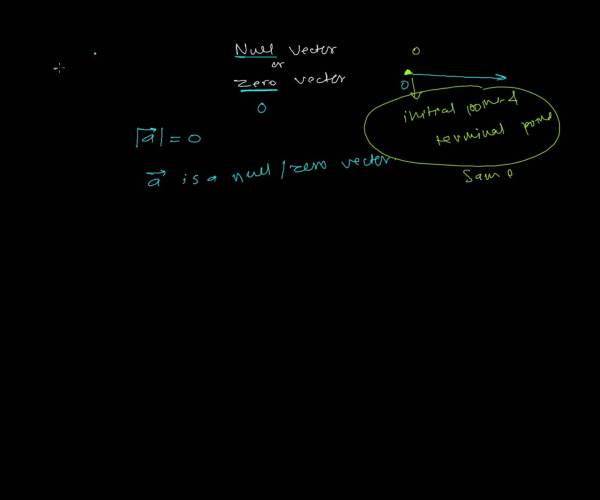 Null vector
or
Zero vector
0
|a⃗| = 0
a⃗ is a null/zero vector
0
0
initial point &
terminal point
Same